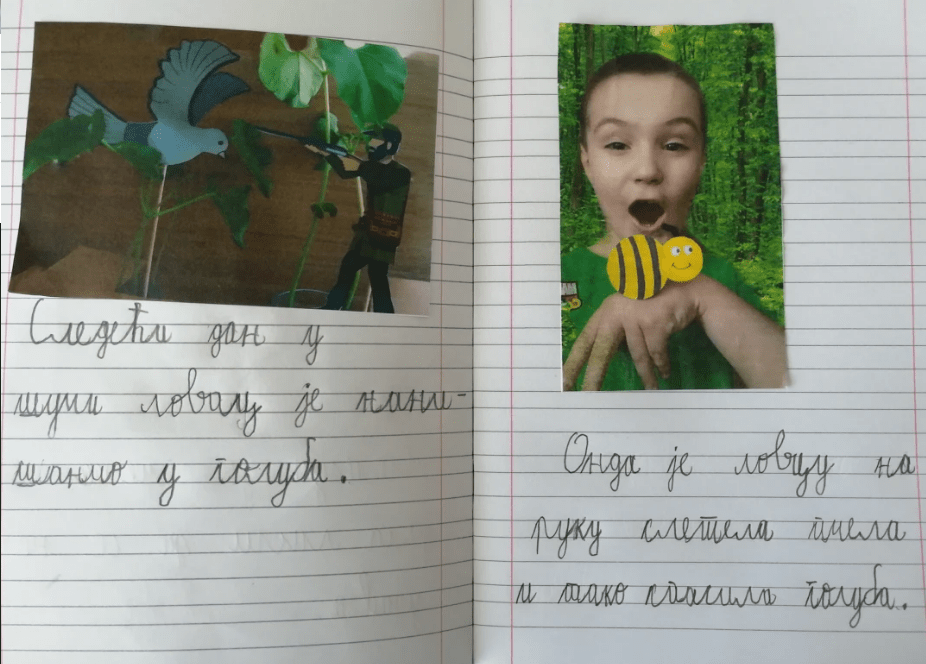 Следећи дан у
шуми ловац је нани-
шанио у голуба.
Онда је ловцу на
руку слетела пчела
и тако спасила голуба.